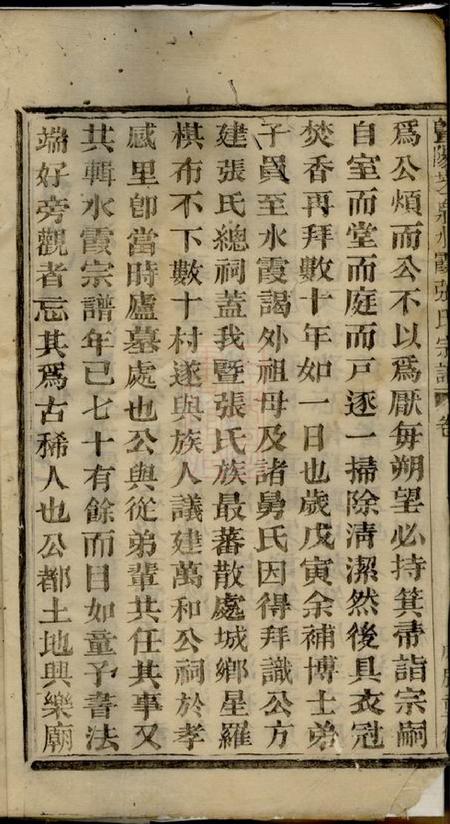 暨陽孝感水霞張氏宗譜 卷
為公煩而公不以為厭每朔望必持箕帚詣宗嗣
自室而堂而庭而戸逐一掃除淸潔然後具衣冠
焚香再拜數十年如一日也歲戊寅余補博士弟
子員至水霞謁外祖母及諸舅氏因得拜識公方
建張氏總祠蓋我暨張氏族最蕃散處城鄉星羅
棋布不下數十村遂與族人議建萬和公祠於孝
感里卽當時廬墓處也公與從弟輩共任其事又
共輯水霞宗譜年已七十有餘而目如童子書法
端好旁觀者忘其為古稀人也公都土地興樂廟